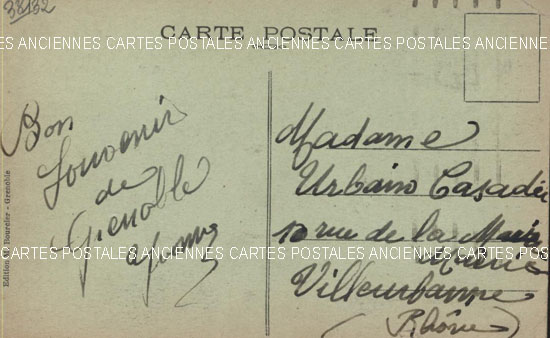 38132
CARTE POSTALE
CARTES POSTALES ANCIENNES CARTES POSTALES ANCIENNES CARTES POSTALES ANCIENNE
Bon
Souvenir
de
Grenoble
Madame
Urbain Casadéi
10 rue de la
Villeurbanne
(Rhône)
CARTES POSTALES ANCIENNES CARTES POSTALES ANCIENNES CARTES POSTALES ANCIENNE
Edition Bourcier - Grenoble